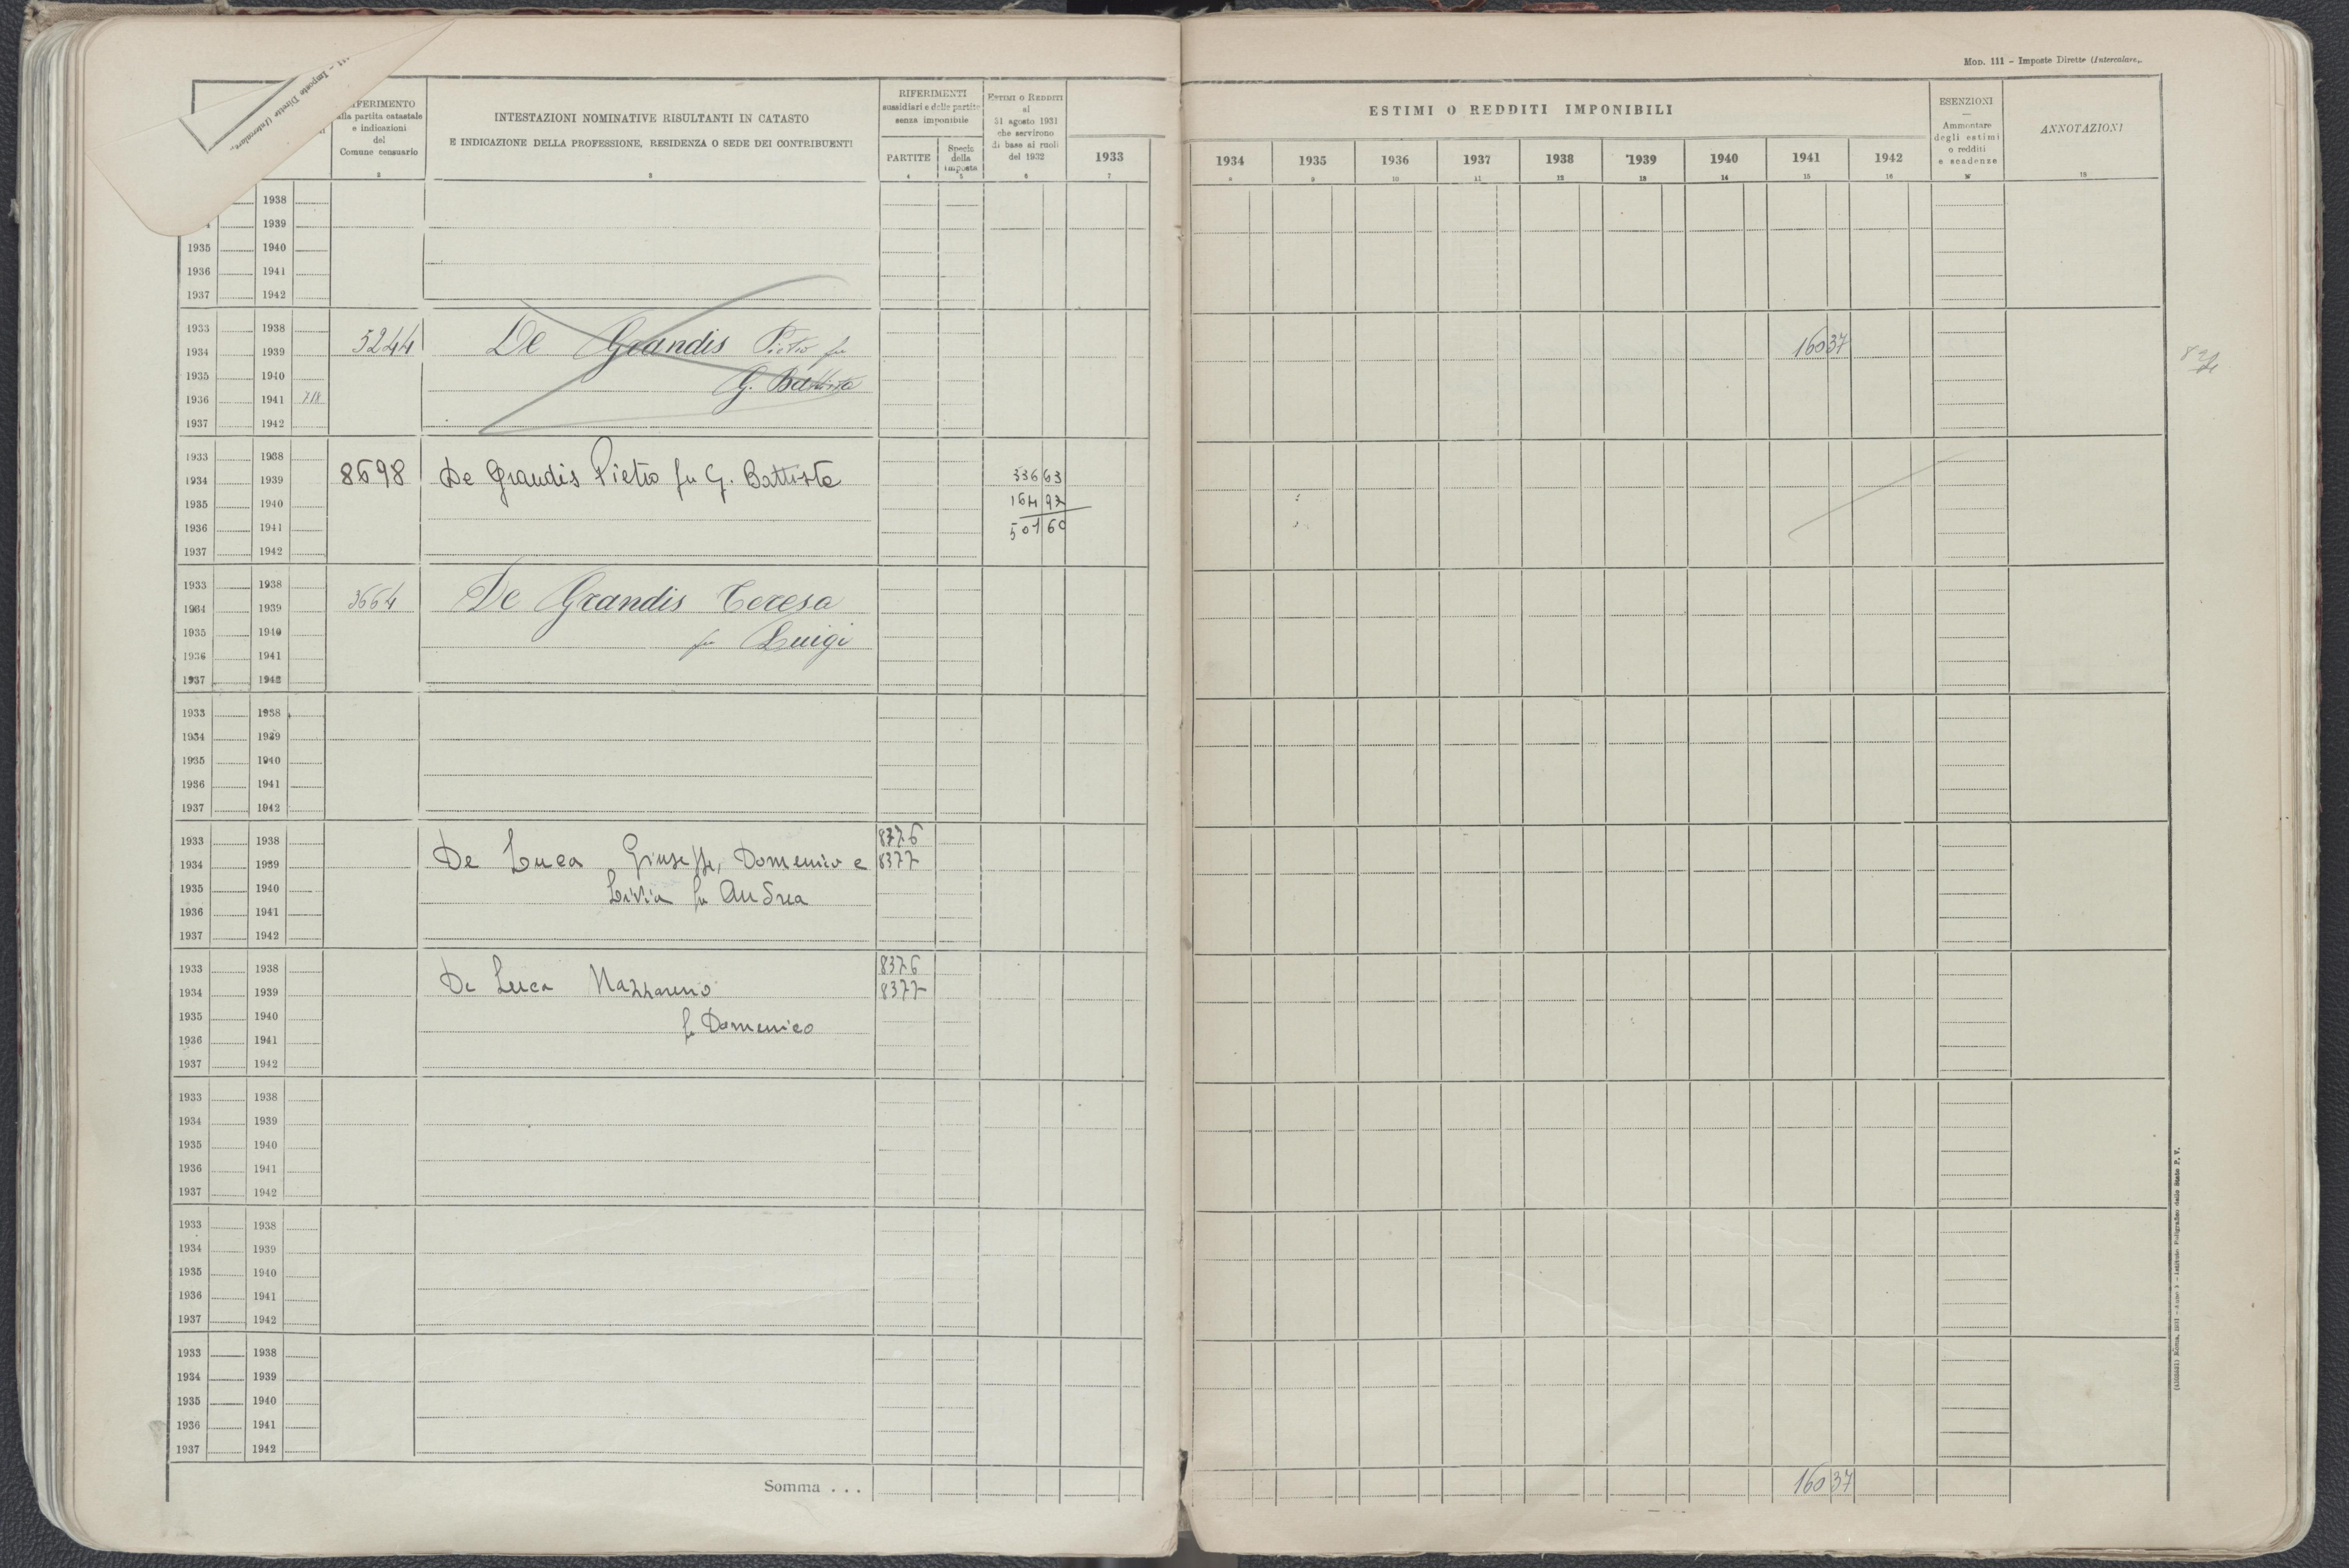 Mod. 111 - Imposte Dirette (Intercalare,
11 - Imposte Dirette (Intercalare,
RIFERIMENTO
alla partita catastale
e indicazioni
del
Comune censuario
2
INTESTAZIONI NOMINATIVE RISULTANTI IN CATASTO
E INDICAZIONE DELLA PROFESSIONE, RESIDENZA O SEDE DEI CONTRIBUENTI
3
RIFERIMENTI
sussidiari e delle partite
senza imponibile
PARTITE
4
Specie
della
imposta
5
Estimi o Redditi
al
31 agosto 1931
che servirono
di base ai ruoli
del 1932
6
1933
7
ESTIMI O REDDITI IMPONIBILI
1934 1935 1936 1937 1938 1939 1940 1941 1942
8 9 10 11 12 13 14 15 16
ESENZIONI
Ammontare
degli estimi
o redditi
e scadenze
ANNOTAZIONI
18
1938
1939
1935 1940
1936 1941
1937 1942
1933 1938
5244 De Grandis Pietro fu
1934 1939 160 37
1935 1940 G. Battista
1936 1941 718
1937 1942
1933 1938
1934 1939 8698 De Grandis Pietro fu G. Battista 336 63
1935 1940 164 97
1936 1941 501 60
1937 1942
1933 1938
1934 1939 3664 De Grandis Teresa
1935 1940 fu Luigi
1936 1941
1937 1942
1933 1938
1934 1939
1935 1940
1936 1941
1937 1942
1933 1938 8376
1934 1939 De Luca Giuseppe, Domenico e 8377
1935 1940 Livia fu Andrea
1936 1941
1937 1942
1933 1938 8376
1934 1939 De Luca Nazzareno 8377
1935 1940 fu Domenico
1936 1941
1937 1942
1933 1938
1934 1939
1935 1940
1936 1941
1937 1942
1933 1938
1934 1939
1935 1940
1936 1941
1937 1942
1933 1938
1934 1939
1935 1940
1936 1941
1937 1942
Somma . . . 160 37
Roma, 1931 - Anno - Istituto Poligrafico dello Stato P. V.